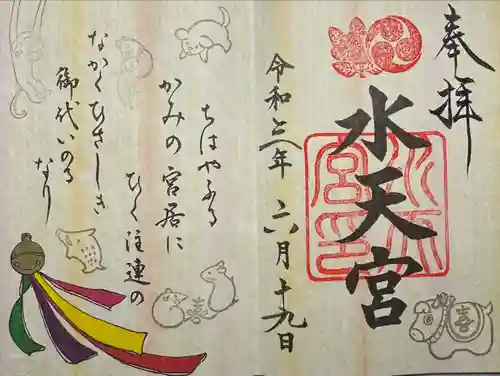 奉拝
水天宮
水天宮印
令和三年六月十九日
喜
ちはやふる
かみの宮居に
ひく注連の
なかくひさしき
御代いのる
なり